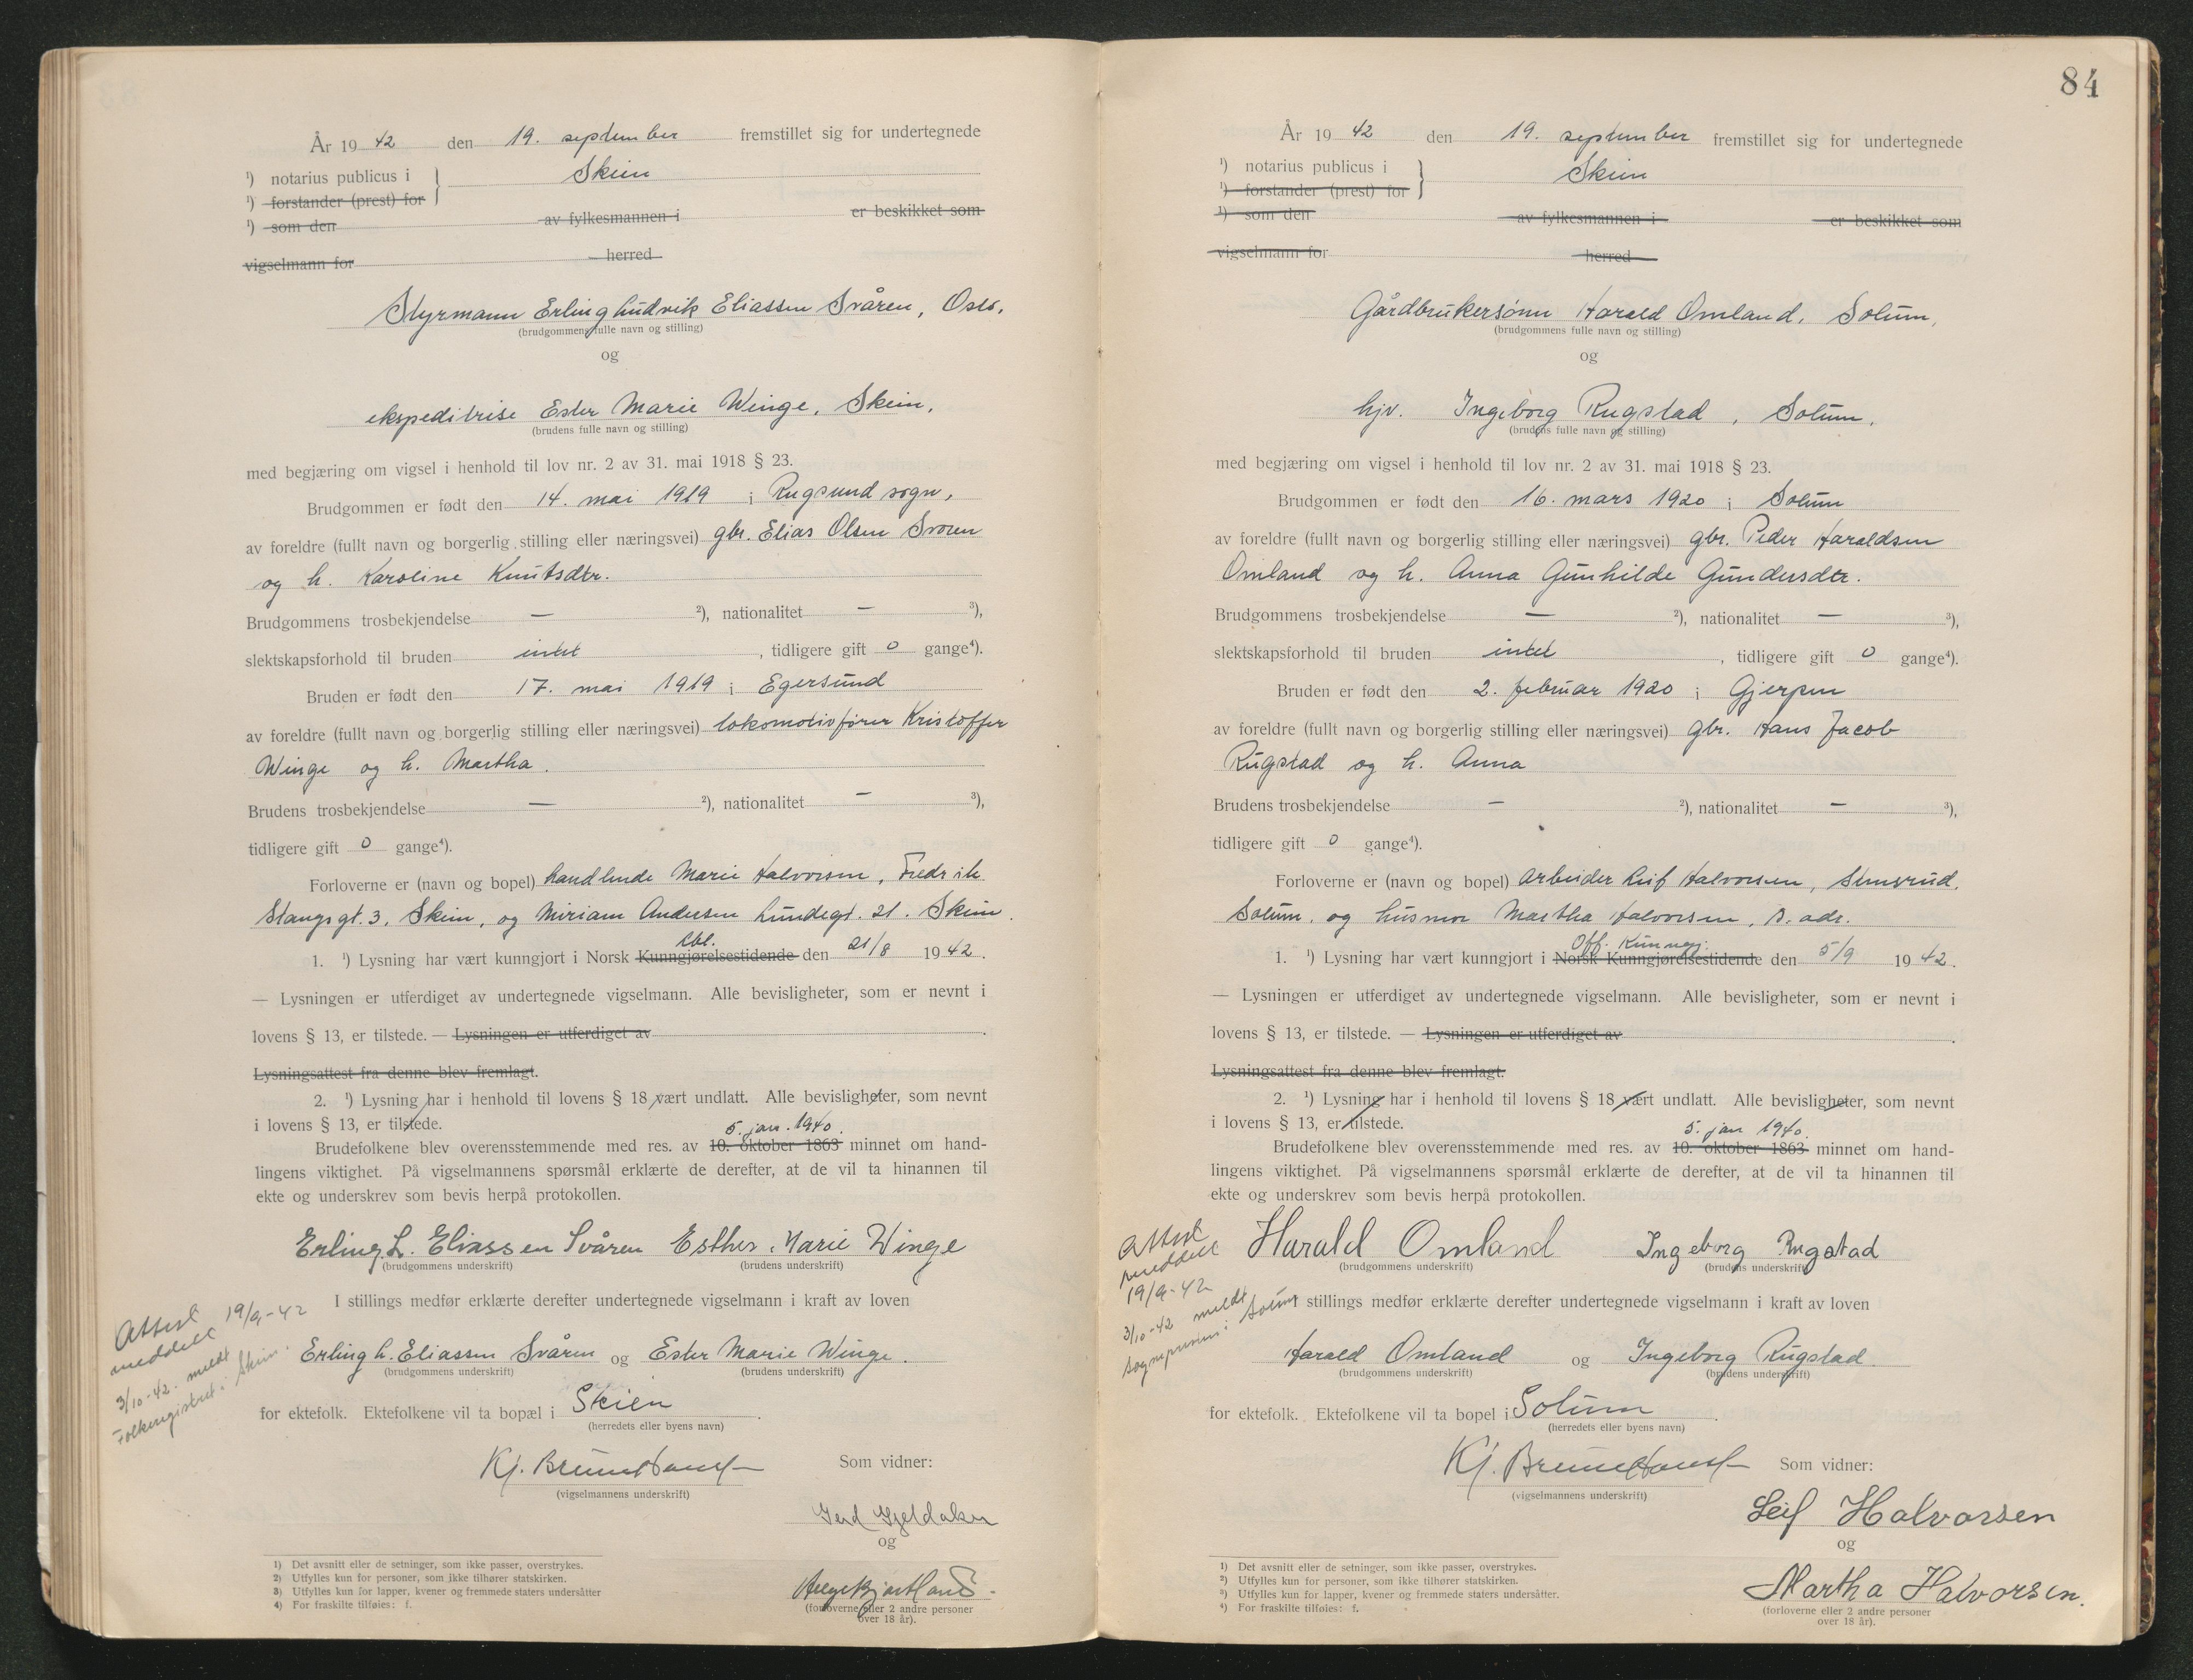 År 19 42 den 19. september fremstillet sig for undertegnede
¹) notarius publicus i } Skien
¹) forstander (prest) for
¹) som den av fylkesmannen i er beskikket som
vigselmann for herred
Styrmann Erling Ludvik Eliassen Svåren, Oslo.
(brudgommens fulle navn og stilling)
og
ekspeditrise Ester Marie Winge, Skien.
(brudens fulle navn og stilling)
med begjæring om vigsel i henhold til lov nr. 2 av 31. mai 1918 § 23.
Brudgommen er født den 14. mai 1919 i Rugsund sogn,
av foreldre (fullt navn og borgerlig stilling eller næringsvei) gbr. Elias Olsen Svoren
og h. Karoline Knutsdtr.
Brudgommens trosbekjendelse — ²), nationalitet — ³),
slektskapsforhold til bruden intet, tidligere gift 0 gange⁴).
Bruden er født den 17. mai 1919 i Egersund
av foreldre (fullt navn og borgerlig stilling eller næringsvei) lokomotivfører Kristoffer
Winge og h. Martha.
Brudens trosbekjendelse — ²), nationalitet — ³),
tidligere gift 0 gange⁴).
Forloverne er (navn og bopel) handlende Marie Halvorsen, Fredrik
Stangsgt. 3, Skien, og Miriam Andersen Lundegt. 21. Skien.
Lbl.
1. ¹) Lysning har vært kunngjort i Norsk Kunngjørelsestidende den 21/8 1942.
— Lysningen er utferdiget av undertegnede vigselmann. Alle bevisligheter, som er nevnt i
lovens § 13, er tilstede. — Lysningen er utferdiget av .
Lysningsattest fra denne blev fremlagt.
2. ¹) Lysning har i henhold til lovens § 18 vært undlatt. Alle bevisligheter, som nevnt
i lovens § 13, er tilstede.
5. jan. 1940.
Brudefolkene blev overensstemmende med res. av 10. oktober 1863 minnet om hand-
lingens viktighet. På vigselmannens spørsmål erklærte de derefter, at de vil ta hinannen til
ekte og underskrev som bevis herpå protokollen.
Erling L. Eliassen Svåren Esther Marie Winge
(brudgommens underskrift) (brudens underskrift)
I stillings medfør erklærte derefter undertegnede vigselmann i kraft av loven
Attest
meddelt 19/9-42
3/10-42 meldt
Folkeregistret i Skien.
Erling L. Eliassen Svåren og Ester Marie Winge.
(brudgommens underskrift) (brudens underskrift)
for ektefolk. Ektefolkene vil ta bopæl i Skien .
(herredets eller byens navn)
Som vidner:
(vigselmannens underskrift)
Gerd Gjeldaker
og
(forloverne eller 2 andre personer
over 18 år).
1) Det avsnitt eller de setninger, som ikke passer, overstrykes.
2) Utfylles kun for personer, som ikke tilhører statskirken.
3) Utfylles kun for lapper, kvener og fremmede staters undersåtter
4) For fraskilte tilføies: f.
84
År 19 42 den 19. september fremstillet sig for undertegnede
¹) notarius publicus i } Skien
¹) forstander (prest) for
¹) som den av fylkesmannen i er beskikket som
vigselmann for herred
Gårdbrukersønn Harald Omland, Solum,
(brudgommens fulle navn og stilling)
og
hjv. Ingeborg Rugstad, Solum.
(brudens fulle navn og stilling)
med begjæring om vigsel i henhold til lov nr. 2 av 31. mai 1918 § 23.
Brudgommen er født den 16. mars 1920 i Solum
av foreldre (fullt navn og borgerlig stilling eller næringsvei) gbr. Peder Haraldsen
Omland og h. Anna Gunhilde Gundersdtr.
Brudgommens trosbekjendelse — ²), nationalitet — ³),
slektskapsforhold til bruden intet, tidligere gift 0 gange⁴).
Bruden er født den 2. februar 1920 i Gjerpen
av foreldre (fullt navn og borgerlig stilling eller næringsvei) gbr. Hans Jacob
Rugstad og h. Anna
Brudens trosbekjendelse — ²), nationalitet — ³),
tidligere gift 0 gange⁴).
Forloverne er (navn og bopel) Arbeider Leif Halvorsen,
Solum, og husmor Martha Halvorsen, s. adr.
Off. Kunngj.
1. ¹) Lysning har vært kunngjort i Norsk Kunngjørelsestidende den 5/9 1942.
— Lysningen er utferdiget av undertegnede vigselmann. Alle bevisligheter, som er nevnt i
lovens § 13, er tilstede. — Lysningen er utferdiget av .
Lysningsattest fra denne blev fremlagt.
2. ¹) Lysning har i henhold til lovens § 18 vært undlatt. Alle bevisligheter, som nevnt
i lovens § 13, er tilstede.
5. jan 1940.
Brudefolkene blev overensstemmende med res. av 10. oktober 1863 minnet om hand-
lingens viktighet. På vigselmannens spørsmål erklærte de derefter, at de vil ta hinannen til
ekte og underskrev som bevis herpå protokollen.
Harald Omland Ingeborg Rugstad
(brudgommens underskrift) (brudens underskrift)
Attest
meddelt
19/9-42
3/10-42 meldt
sognepresten i Solum
I stillings medfør erklærte derefter undertegnede vigselmann i kraft av loven
Harald Omland og Ingeborg Rugstad.
(brudgommens underskrift) (brudens underskrift)
for ektefolk. Ektefolkene vil ta bopel i Solum .
(herredets eller byens navn)
Som vidner:
(vigselmannens underskrift)
Leif Halvorsen
og
Martha Halvorsen.
(forloverne eller 2 andre personer
over 18 år).
¹) Det avsnitt eller de setninger, som ikke passer, overstrykes.
²) Utfylles kun for personer, som ikke tilhører statskirken.
³) Utfylles kun for lapper, kvener og fremmede staters undersåtter.
⁴) For fraskilte tilføies: f.